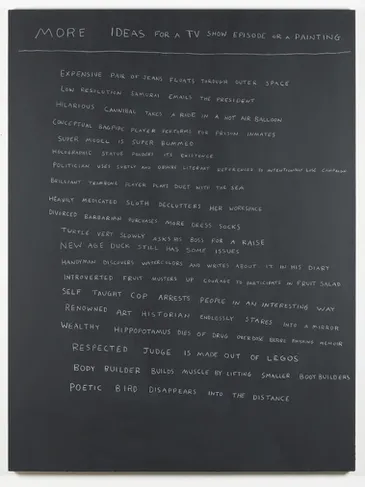 MORE IDEAS FOR A TV SHOW EPISODE OR A PAINTING
EXPENSIVE PAIR OF JEANS FLOATS THROUGH OUTER SPACE
LOW RESOLUTION SAMURAI EMAILS THE PRESIDENT
HILARIOUS CANNIBAL TAKES A RIDE IN A HOT AIR BALLOON
CONCEPTUAL BAGPIPE PLAYER PERFORMS FOR PRISON INMATES
SUPER MODEL IS SUPER BUMMED
HOLOGRAPHIC STATUE PONDERS ITS EXISTENCE
POLITICIAN USES SUBTLE AND OBSCURE LITERARY REFERENCES TO INTENTIONALLY LOSE CAMPAIGN
BRILLIANT TROMBONE PLAYER PLAYS DUET WITH THE SEA
HEAVILY MEDICATED SLOTH DECLUTTERS HER WORKSPACE
DIVORCED BARBARIAN PURCHASES MORE DRESS SOCKS
TURTLE VERY SLOWLY ASKS HIS BOSS FOR A RAISE
NEW AGE DUCK STILL HAS SOME ISSUES
HANDYMAN DISCOVERS WATERCOLORS AND WRITES ABOUT IT IN HIS DIARY
INTROVERTED FRUIT MUSTERS UP COURAGE TO PARTICIPATE IN FRUIT SALAD
SELF TAUGHT COP ARRESTS PEOPLE IN AN INTERESTING WAY
RENOWNED ART HISTORIAN ENDLESSLY STARES INTO A MIRROR
WEALTHY HIPPOPOTAMUS DIES OF DRUG OVERDOSE BEFORE FINISHING MEMOIR
RESPECTED JUDGE IS MADE OUT OF LEGOS
BODY BUILDER BUILDS MUSCLE BY LIFTING SMALLER BODY BUILDERS
POETIC BIRD DISAPPEARS INTO THE DISTANCE